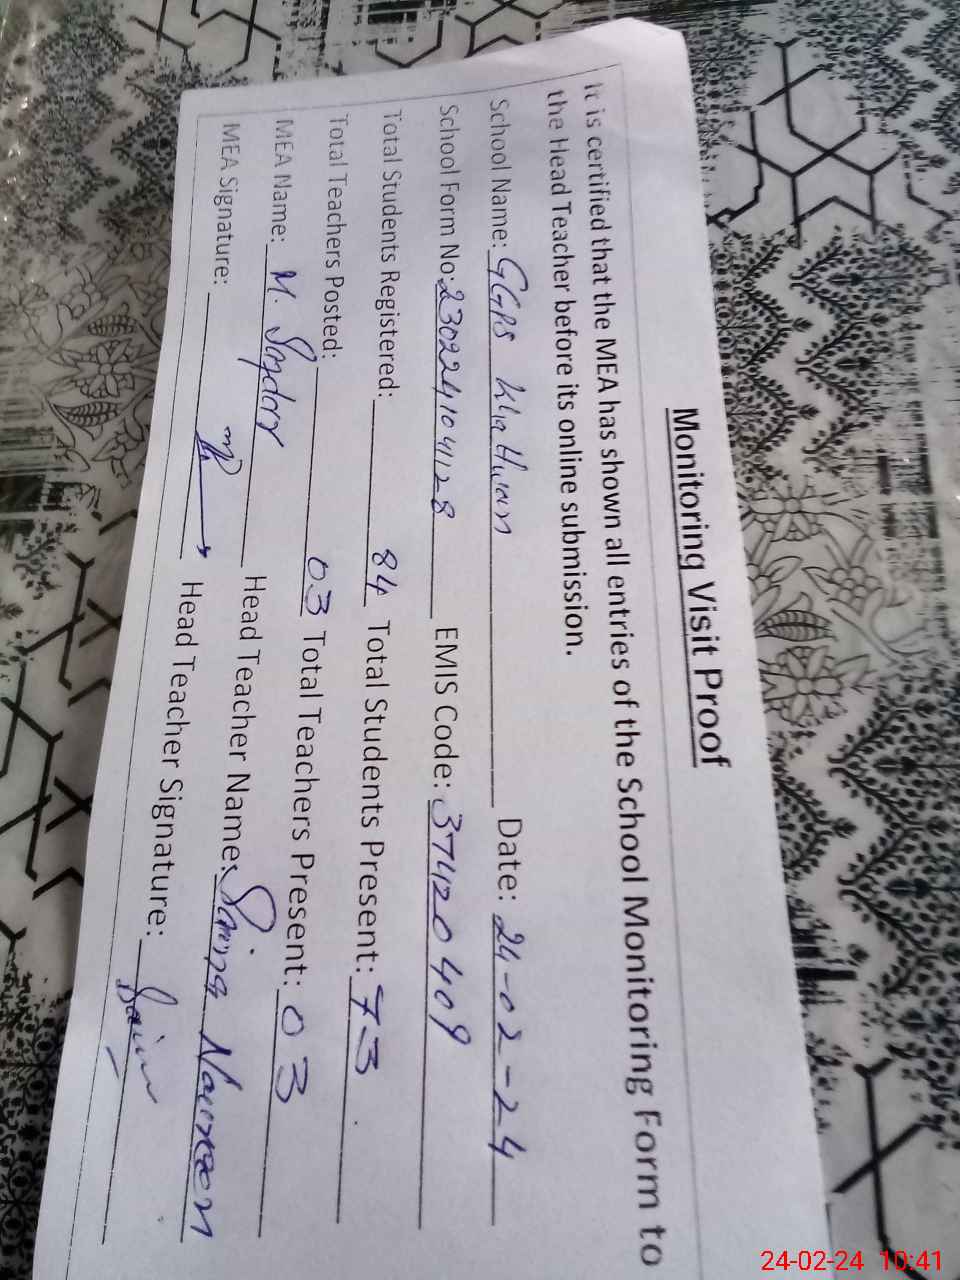 Monitoring Visit Proof
It is certified that the MEA has shown all entries of the School Monitoring Form to
the Head Teacher before its online submission.
School Name: GGPS Kha Date: 24-02-24
School Form No: 2302241041128 EMIS Code: 37420409
Total Students Registered: 84 Total Students Present: 73
Total Teachers Posted: 03 Total Teachers Present: 03
MEA Name: M. Head Teacher Name: Saima Noureen
MEA Signature: Head Teacher Signature: Saima
24-02-24 10:41